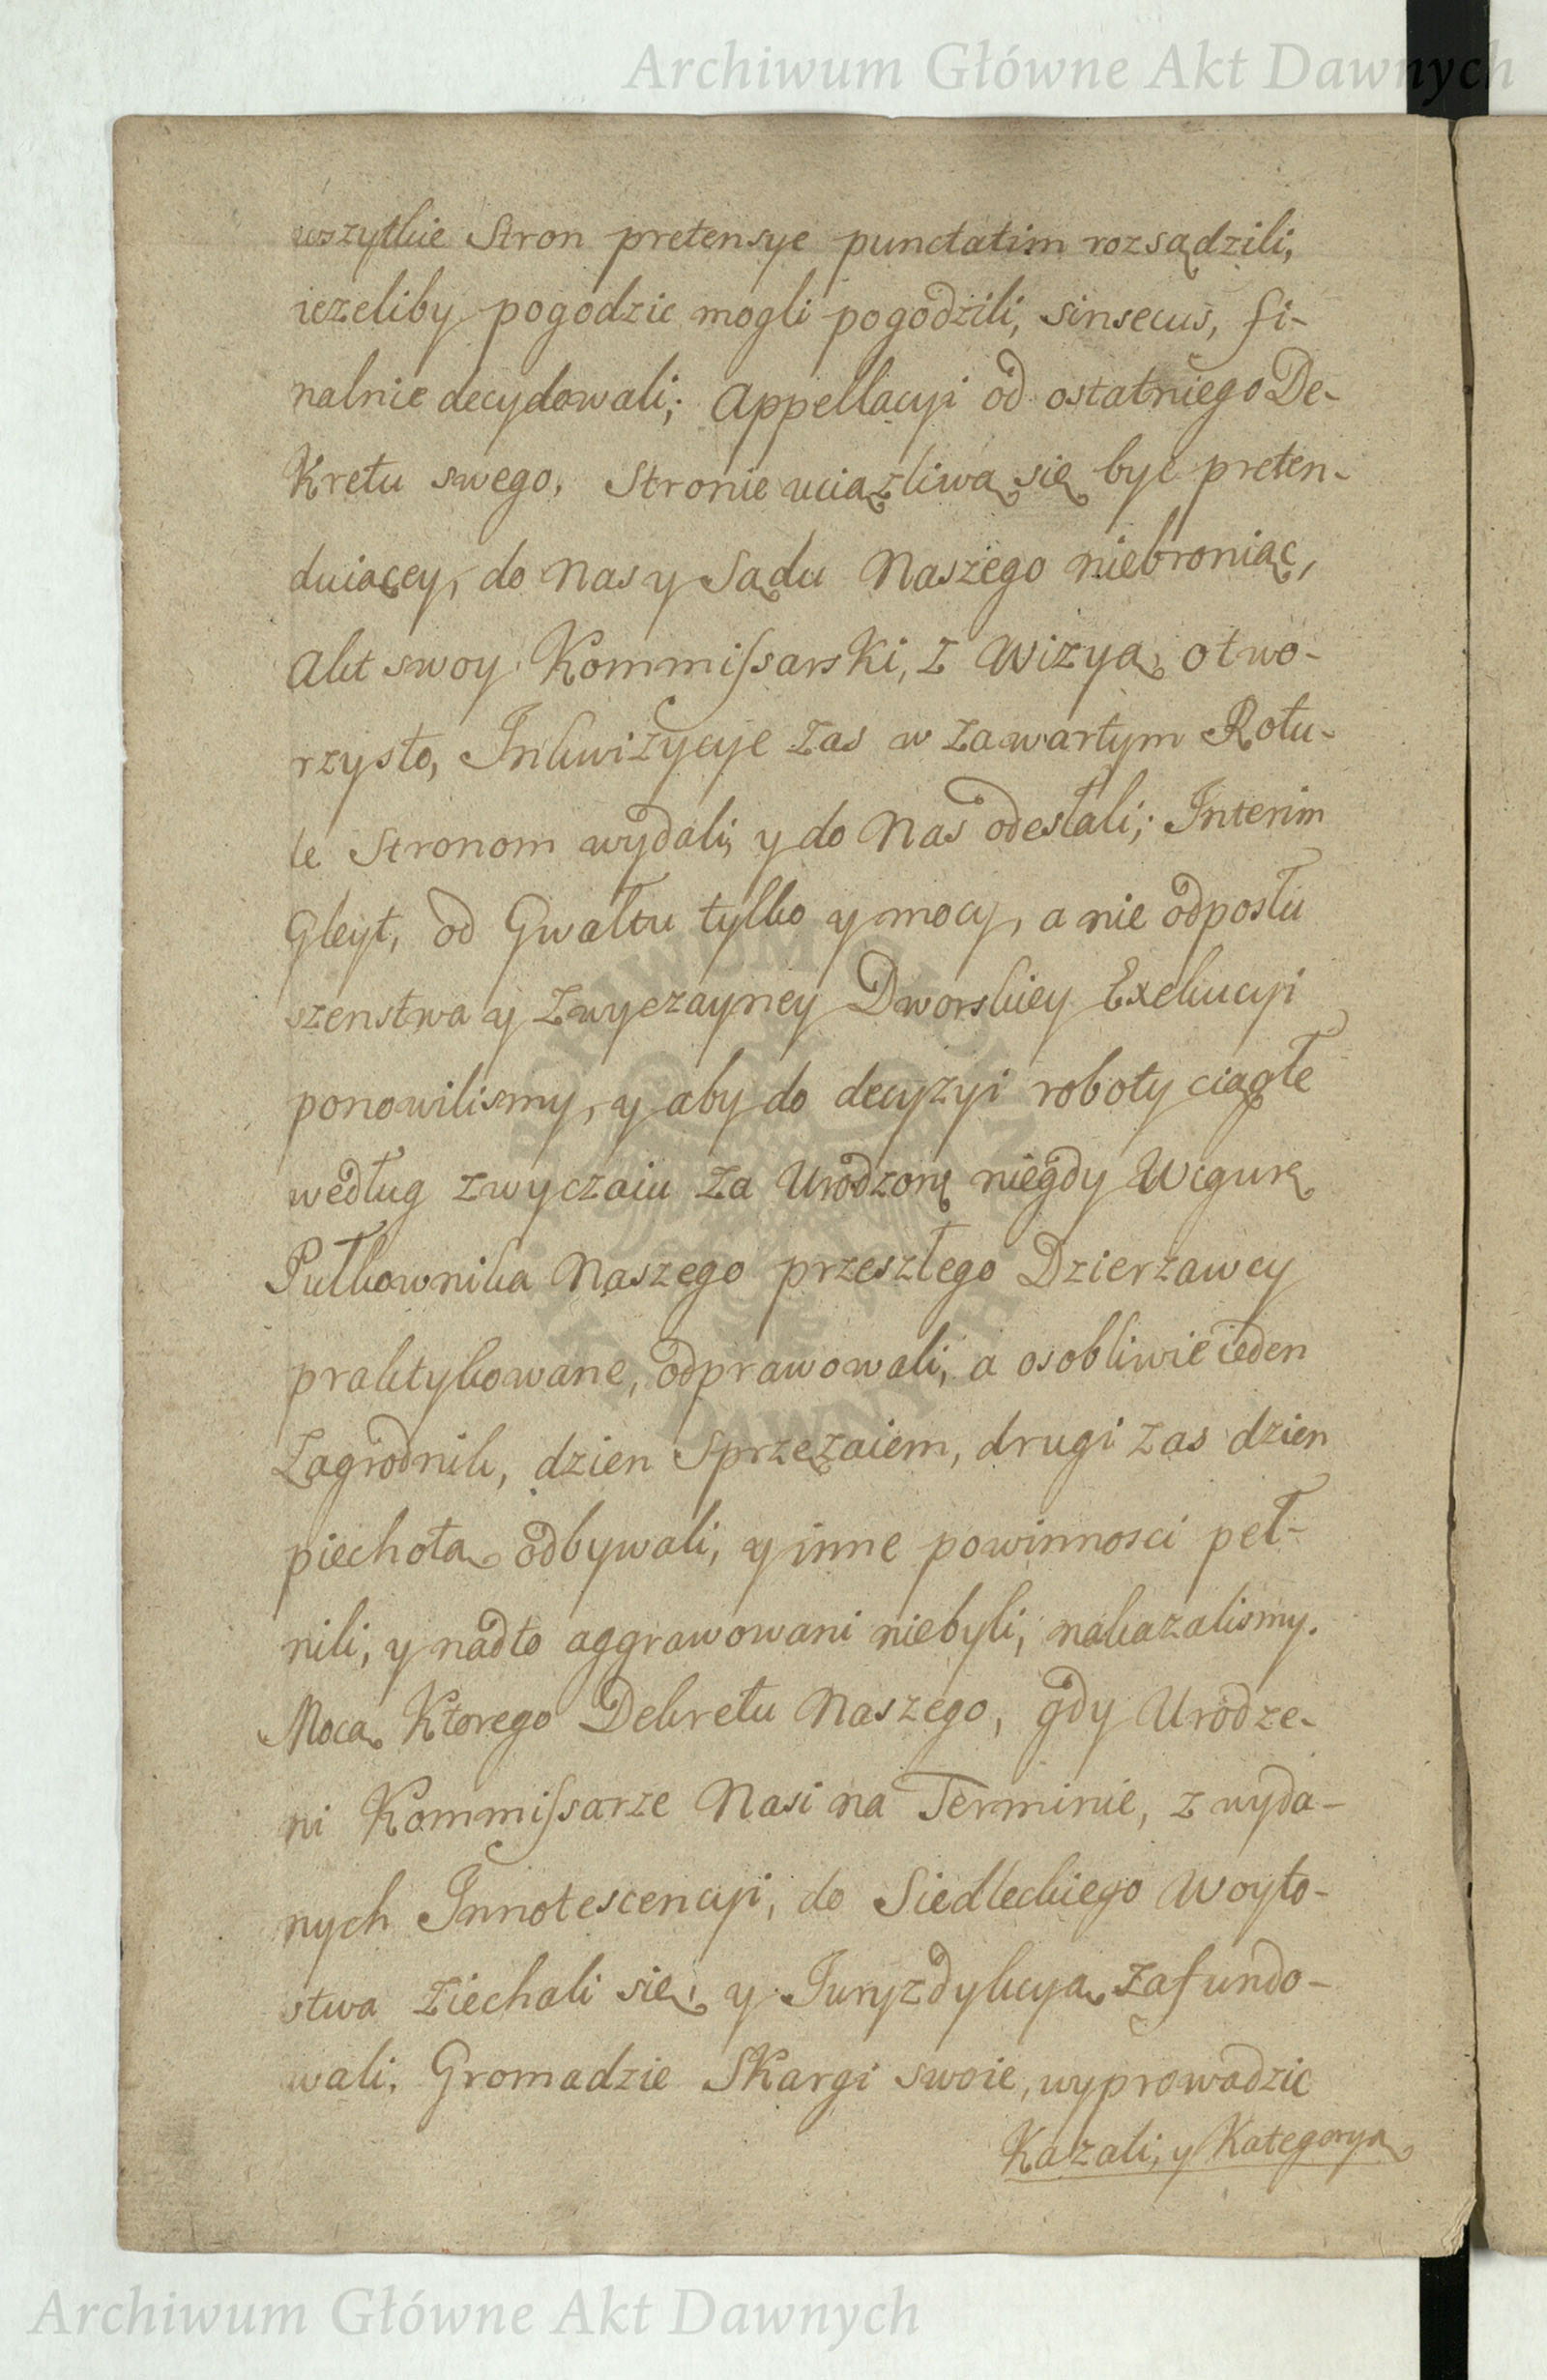 Archiwum Główne Akt Dawnych
wszytkie Stron pretensye punctatim rozsądzili,
iezeliby pogodzic mogli pogodzili, sinsecus, fi-
nalnie decydowali; Appellacyi od ostatniego De-
Kretu swego, Stronie uciązliwą się byc preten-
duiącey, do Nas y Sądu Naszego niebroniąc,
Akt swoy Kommissarski, z Wizyą, otwo-
rzysto, Inkwizycye zas w zawartym Rotu-
le Stronom wydali, y do Nas odesłali; Interim
Gleyt, od Gwałtu tylko y mocy, a nie odposłu
szenstwa y zwyczayney Dworskiey Exekucyi
ponowilismy, y aby do decyzyi roboty ciągłe
według zwyczaiu za Urodzonę niegdy Wigurę
Pułkownika Naszego przeszłego Dzierzawcy
praktykowane, odprawowali, a osobliwie ieden
Zagrodnik, dzien Sprzęzaiem, drugi zas dzien
piechotą odbywali, y inne powinnosci peł-
nili, y nadto aggrawowani niebyli, nakazalismy.
Mocą Ktorego Dekretu Naszego, gdy Urodze-
ni Kommissarze Nasi na Terminie, z wyda-
nych Innotescencyi, do Siedleckiego Woyto-
stwa ziechali się, y Juryzdykcyą zafundo-
wali, Gromadzie SKargi swoie, wyprowadzic
Kazali, y Kategoryą
Archiwum Główne Akt Dawnych